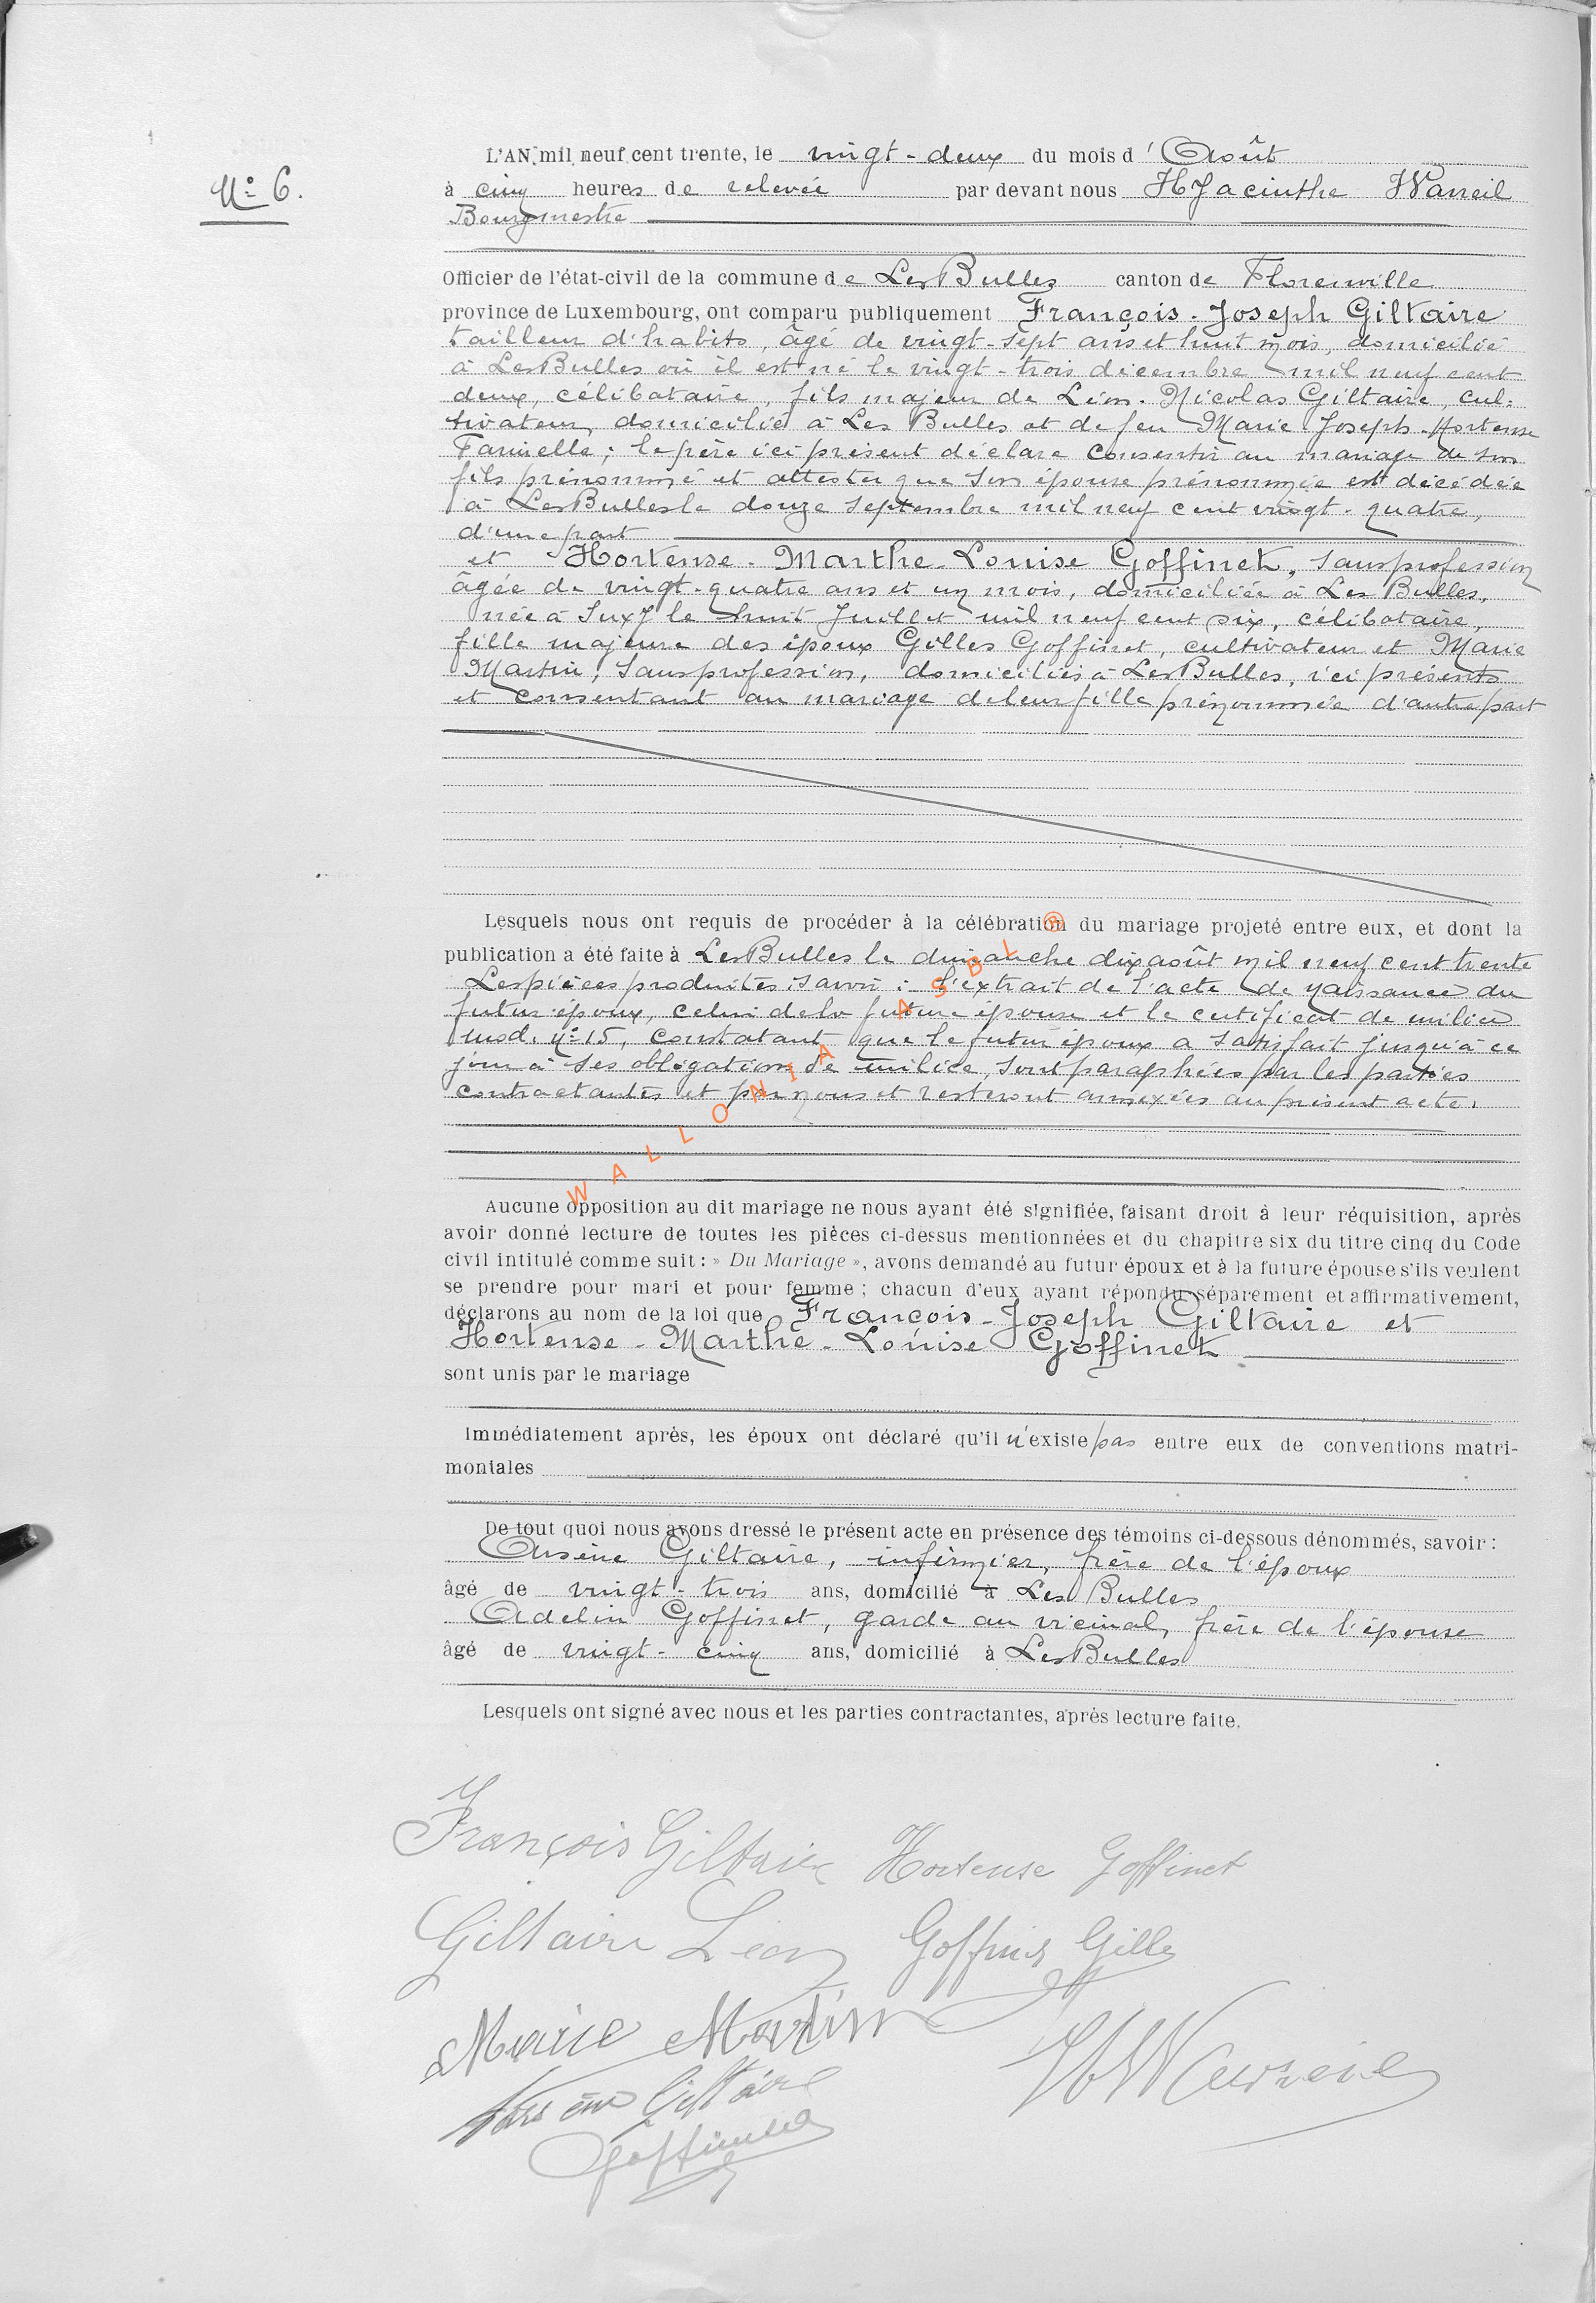 L'AN mil neuf cent trente, le vingt-deux du mois d'Août
N° 6.
à cinq heures de relevée par devant nous Hyacinthe Warzeil
Bourgmestre
Officier de l'état-civil de la commune de Les Bulles canton de Florenville
province de Luxembourg, ont comparu publiquement François-Joseph Giltaire
tailleur d'habits, âgé de vingt-sept ans et huit mois, domicilié
à Les Bulles où il est né le vingt-trois décembre mil neuf cent
deux, célibataire, fils majeur de Léon-Nicolas Giltaire, cul-
tivateur, domicilié à Les Bulles et de feu Marie-Joseph-Hortense
le père ici présent déclare consentir au mariage de son
fils prénommé et attester que son épouse prénommée est décédée
à Les Bulles le douze septembre mil neuf cent vingt-quatre,
d'une part
et Hortense-Marthe-Louise Goffinet, sans profession
âgée de vingt-quatre ans et un mois, domiciliée à Les Bulles,
née à Suxy le huit Juillet mil neuf cent six, célibataire,
fille majeure des époux Gilles Goffinet, cultivateur et Marie
Martin, sans profession, domiciliés à Les Bulles, ici présents
et consentant au mariage de leur fille prénommée d'autre part
Lesquels nous ont requis de procéder à la célébration du mariage projeté entre eux, et dont la
publication a été faite à Les Bulles le dimanche dix août mil neuf cent trente
Les pièces produites, savoir : l'extrait de l'acte de naissance du
futur époux, celui de la future épouse et le certificat de milice
mod. n° 15, constatant que le futur époux a satisfait jusqu'à ce
jour à ses obligations de milice, sont paraphées par les parties
contractantes et par nous et resteront annexées au présent acte.
WALLONIA ASBL ®
Aucune opposition au dit mariage ne nous ayant été signifiée, faisant droit à leur réquisition, après
avoir donné lecture de toutes les pièces ci-dessus mentionnées et du chapitre six du titre cinq du Code
civil intitulé comme suit : » Du Mariage », avons demandé au futur époux et à la future épouse s'ils veulent
se prendre pour mari et pour femme ; chacun d'eux ayant répondu séparement et affirmativement,
déclarons au nom de la loi que François-Joseph Giltaire et
Hortense-Marthe-Louise Goffinet
sont unis par le mariage
Immédiatement après, les époux ont déclaré qu'il n'existe pas entre eux de conventions matri-
moniales
De tout quoi nous avons dressé le présent acte en présence des témoins ci-dessous dénommés, savoir :
Arsène Giltaire, infirmier, frère de l'époux
âgé de vingt-trois ans, domicilié à Les Bulles
Adelin Goffinet, garde au vicinal, frère de l'épouse
âgé de vingt-cinq ans, domicilié à Les Bulles
Lesquels ont signé avec nous et les parties contractantes, après lecture faite.
François Giltaire Hortense Goffinet
Giltaire Léon Goffinet Gille
Marie Martin
Arsène Giltaire
Goffinet